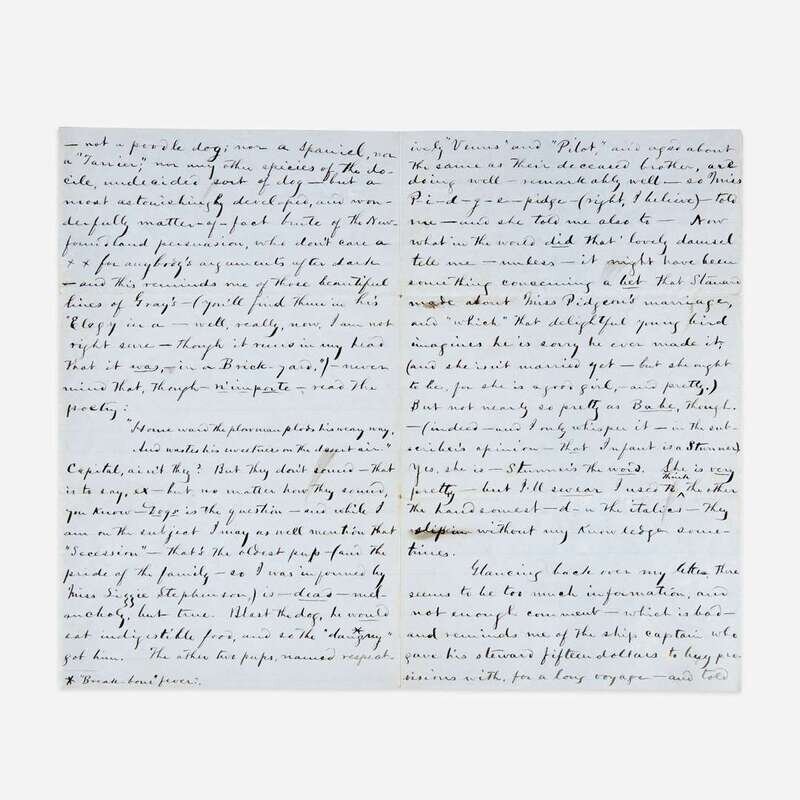 — not a poodle dog; nor a spaniel, nor
a "Tarrier," nor any other spicies of the do-
cile, undecided sort of dog — but a
most astonishingly developed, and won-
derfully matter-of-fact brute of the New-
foundland persuasion, who don't care a
x x for anybody's arguments after dark
— and this reminds me of those beautiful
lines of Gray's — (you'll find them in his
"Elegy in a — well, really, now, I am not
right sure — though it runs in my head
that it was, — in a Brick-yard,") — never
mind that, though — n'importe — read the
poetry:
"Homeward the plowman plods his weary way,
And wastes his sweetness on the desert air."
Capital, ain't they? But they don't sound — that
is to say, ex — but no matter how they sound,
you know — Dogs is the question — and while I
am on the subject I may as well mention that
"Secession" — that's the oldest pup — (and the
pride of the family — so I was informed by
Miss Lizzie Stephenson,) is — dead — mel-
ancholy, but true. Blast the dog, he would
eat indigestible food, and so the "dan*gay"
got him. The other two pups, named respect-
* "Break-bone" fever.
ively "Venus" and "Pilot," and aged about
the same as their deceased brother, are
doing well — remarkably well — so Miss
P-i-d-g-e-pidge — (right, I believe) — told
me — and she told me also to — Now
what in the world did that lovely damsel
tell me — unless — it might have been
something concerning a bet that
made about Miss Pidgeon's marriage,
and "which" that delightful young bird
imagines he is sorry he ever made it,
(and she isn't married yet — but she ought
to be, for she is a good girl, — and pretty.)
But not nearly so pretty as Babe, though.
— (indeed — and I only whisper it — in the sub-
scriber's opinion — that Infant is a Stunner)
Yes, she is — Stunner's the word. She is very
pretty — but I'll swear I used to ^think the other
the handsomest — d—n the italics — they
slip in without my knowledge, some-
times.
Glancing back over my letter, there
seems to be too much information, and
not enough comment — which is bad —
and reminds me of the ship captain who
gave his steward fifteen dollars to buy pro
visions with, for a long voyage — and told